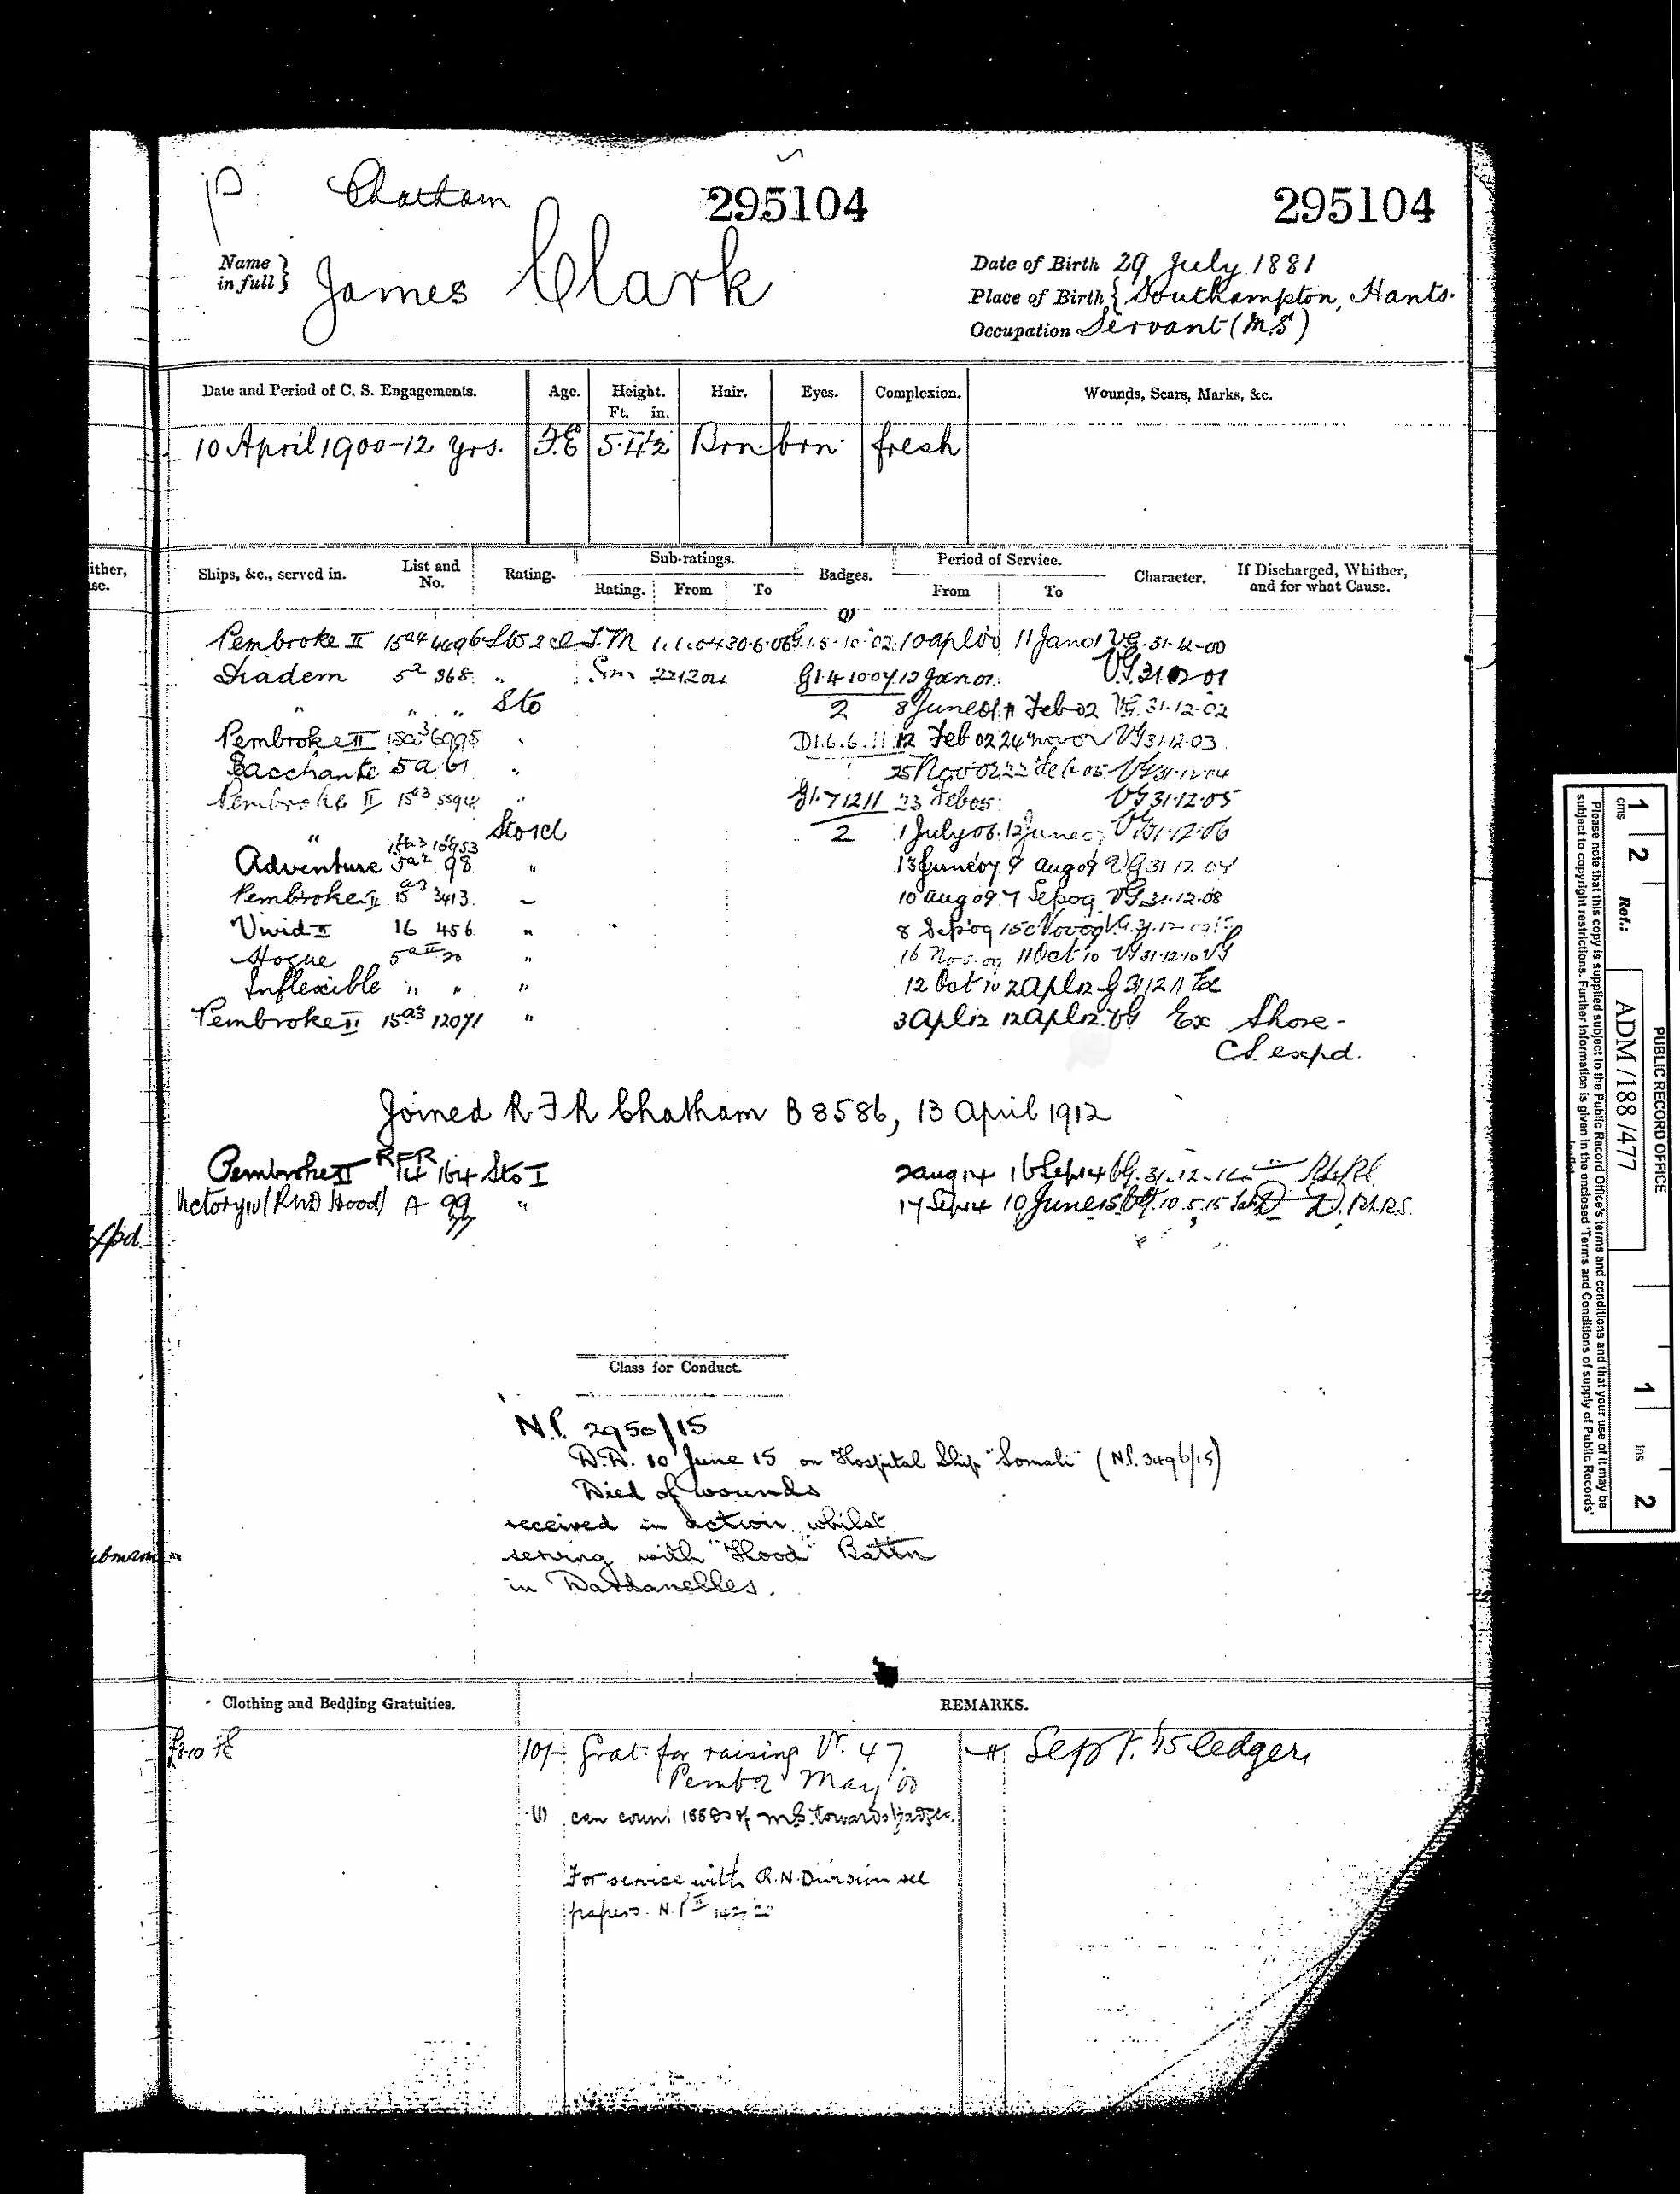 Chatham 295104 295104
Name in full } James Clark
Date of Birth 29 July 1881
Place of Birth { Southampton, Hants.
Occupation Servant (M.S)
Date and Period of C. S. Engagements. Age. Height. Ft. in. Hair. Eyes. Complexion. Wounds, Scars, Marks, &c.
10 April 1900-12 yrs. 5.4½ Brn. brn. fresh
ither,
Ships, &c., served in. List and No. Rating. Sub-ratings. Rating. From To Badges. Period of Service. From To Character. If Discharged, Whither, and for what Cause.
(1)
Pembroke II 15a4 4496 Sto 2cl 11 Jan 01 VG. 31-12-00
Diadem 5² 368 " 12 Jan 01
" " " Sto 2 8 June 01 11 Feb 02 VG. 31-12-02
Pembroke II 15a3 6995 " D1.6.6.11 12 Feb 02 VG 31.12.03
Bacchante 5a 61 "
Pembroke II 15a3 5594 " G1.7 12 11 23 Feb 05 VG 31.12.05
" 15a3 10953 Sto 1cl 2 1 July 06. 12 June 07 VG 31.12.06
Adventure 5a2 98 " 13 June 07 9 Aug 09 VG 31 12 07
Pembroke II 15a3 3413 " 10 Aug 09 7 Sep 09 VG 31.12.08
Vivid II 16 456 " 8 Sep 09 15 Nov 09
Hogue 5a II 20 " 16 Nov. 09 11 Oct 10 VG 31.12.10 VG
Inflexible " " " 12 Oct 10 2 Apl 12
Pembroke II 15a3 12071 " 3 Apl 12 12 Apl 12. VG Ex Shore -
CS. expd.
Joined R F R Chatham B 8586, 13 April 1912
Pembroke II RFR 14 164 Sto I 2 Aug 14 16 Sep 14
Victory IV (RND Hood) A 99 " 17 Sep 14 10 June 15
Class for Conduct.
N.P. 2950/15
D.D. 10 June 15 on Hospital Ship "Somali" (N.P. 3496/15)
Died of wounds
received in action whilst
serving with "Hood" Battn
in Dardanelles.
Clothing and Bedding Gratuities. REMARKS.
10/- Grat. for raising Vr. 47. Sept. '15 ledger,
Pemb 2 May 00
(1) can count 188 ds of M.S. towards badges.
For service with R.N. Division see
papers. N.P. II
PUBLIC RECORD OFFICE
1 cms 2 Ref.: ADM/188/477 1 ins 2
Please note that this copy is supplied subject to the Public Record Office's terms and conditions and that your use of it may be
subject to copyright restrictions. Further information is given in the enclosed 'Terms and Conditions of supply of Public Records'
leaflet